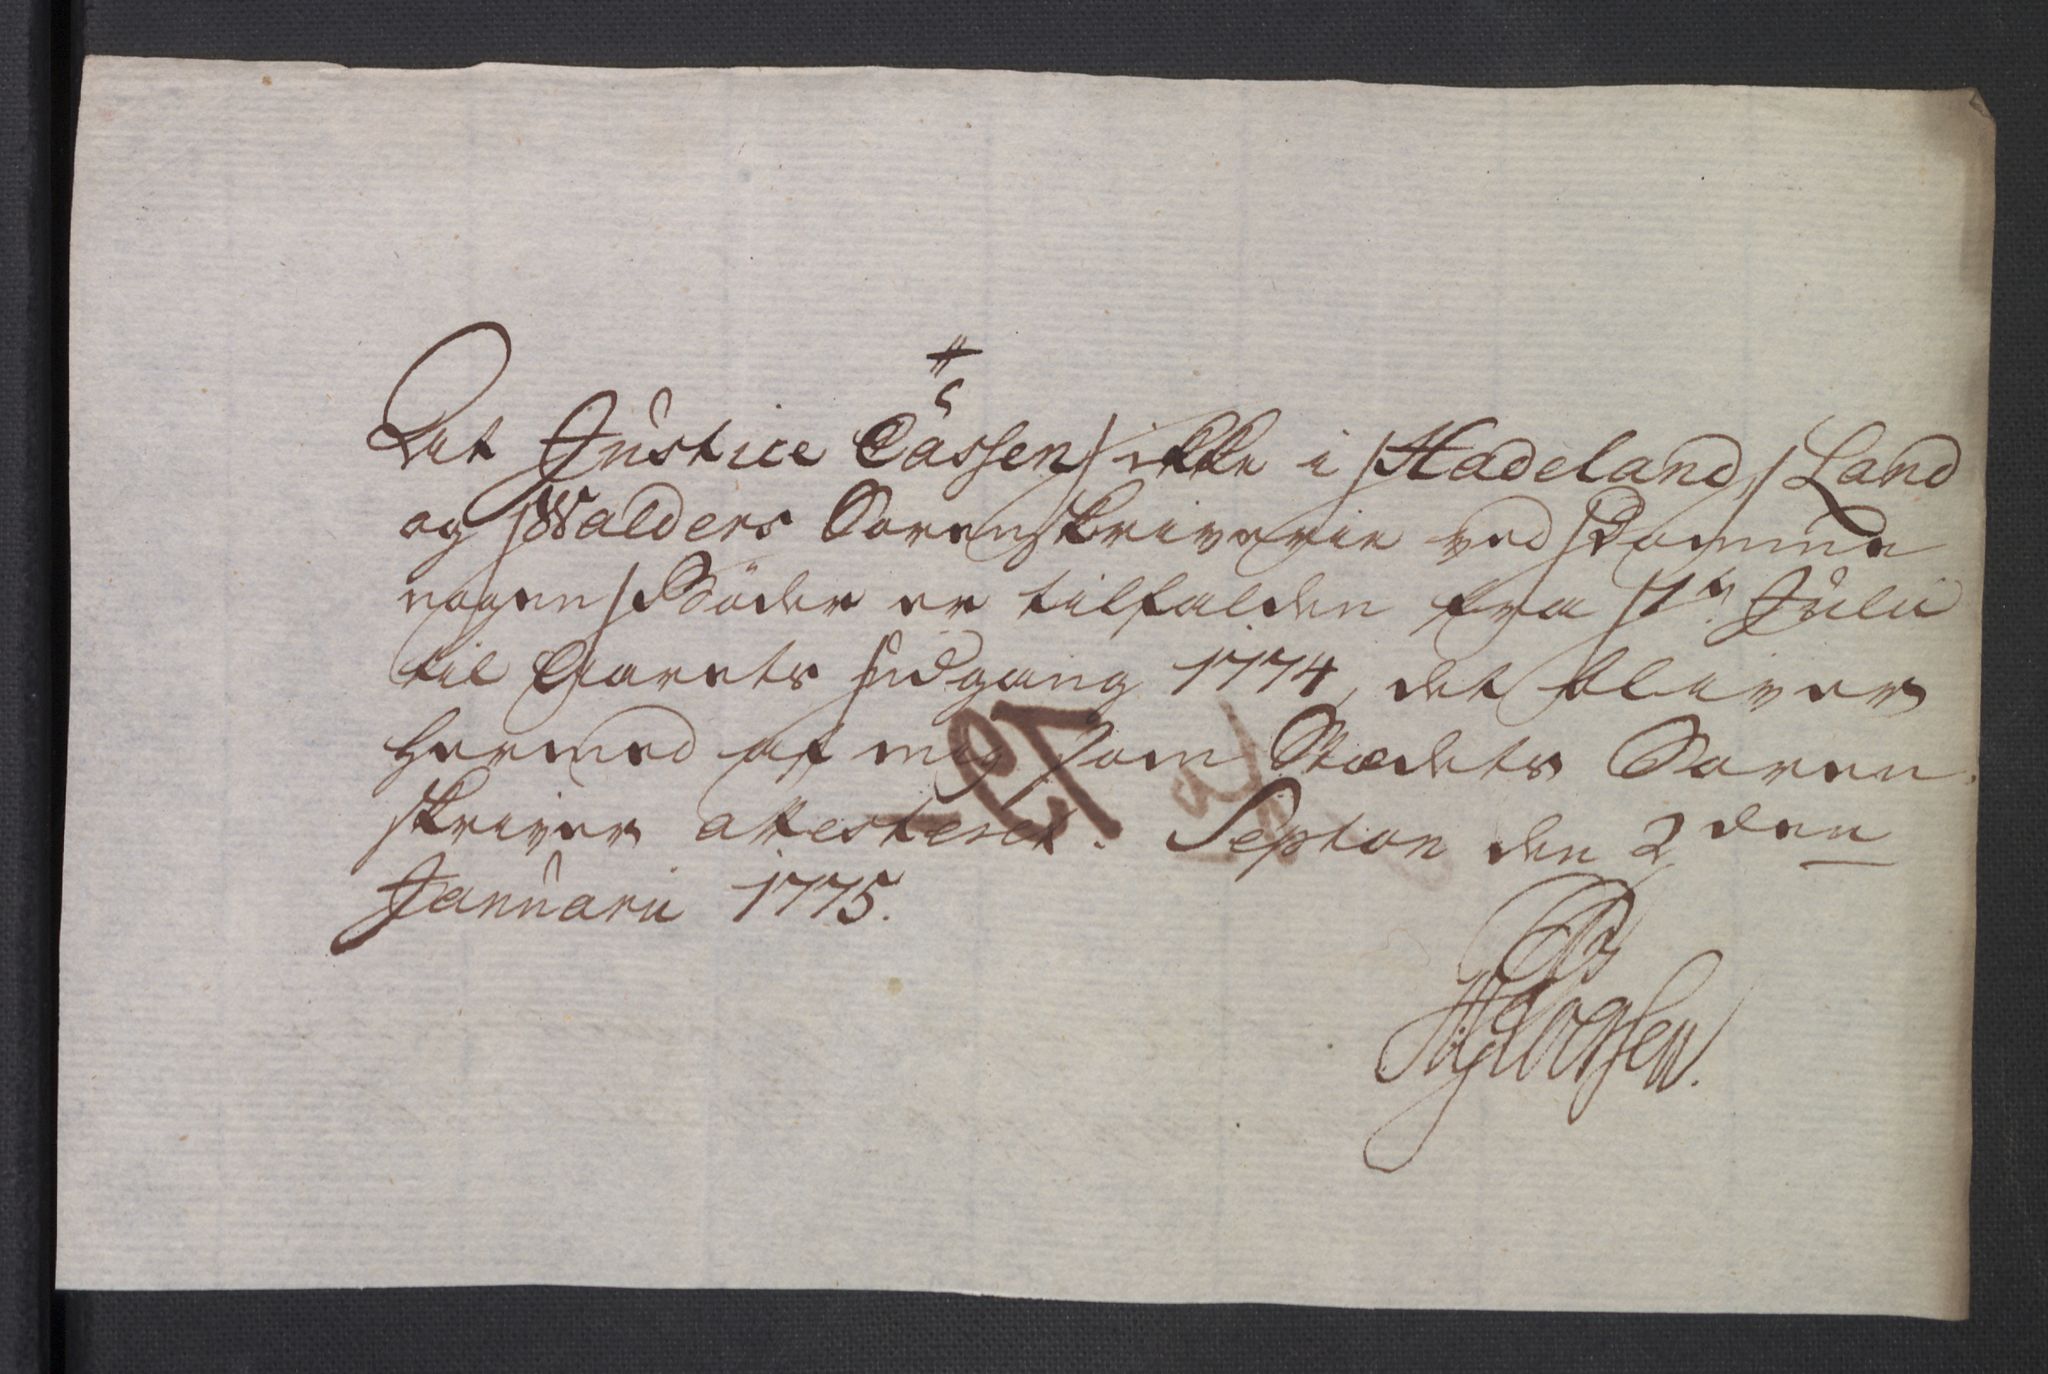 #
5
At Justice Cassen ikke i Hadeland, Land
og Walders Sorenskriverie ved Domme
nogen Böder er tilfalden fra 1te Julii
til Aarets Udgang 1774, det bliver
hermed af mig som Stædets Soren
skriver attesteret. Septon den 2den
Januarii 1775.